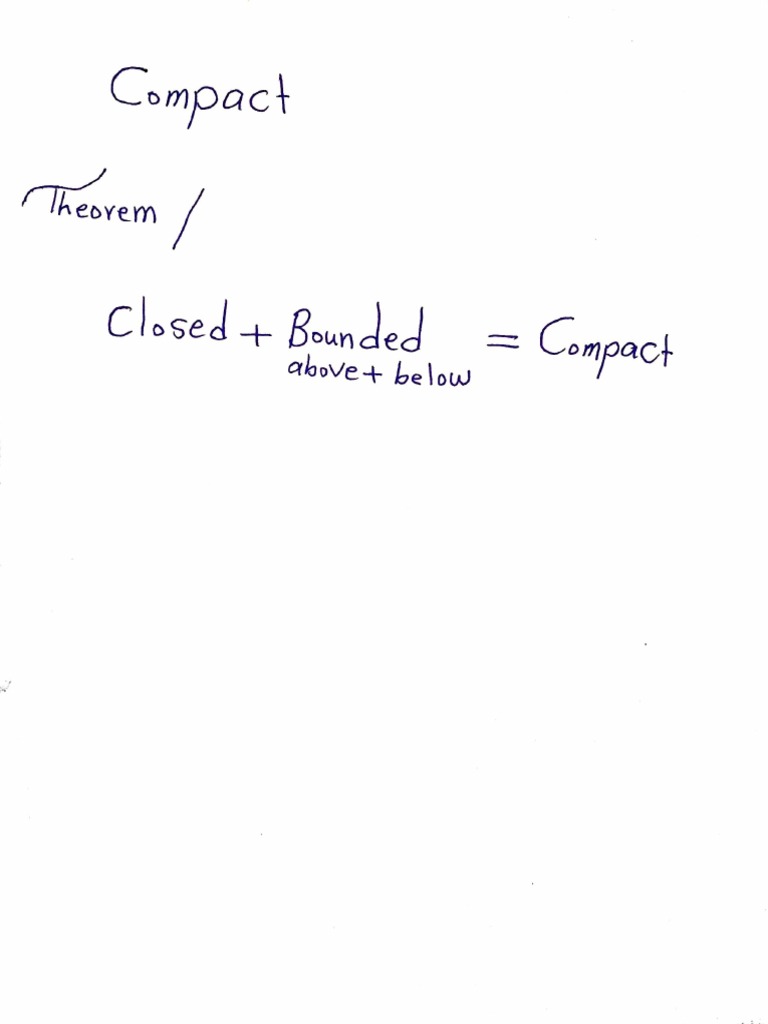 Compact
Theorem /
Closed + Bounded = Compact
above + below